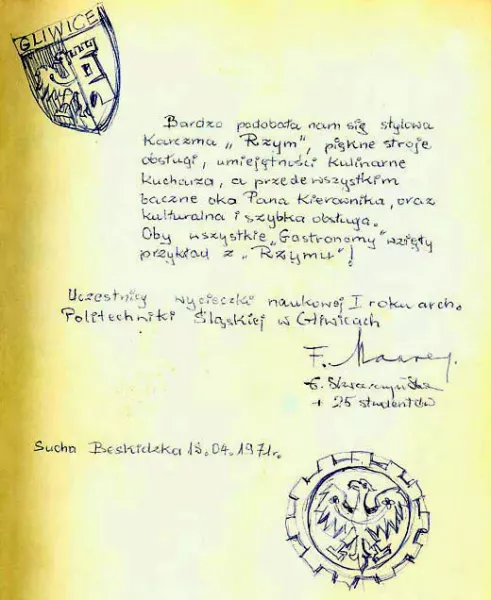 GLIWICE
Bardzo podobała nam się stylowa
Karczma „Rzym", piękne stroje
obsługi, umiejętności kulinarne
kucharza, a przede wszystkim
baczne oka Pana Kierownika, oraz
kulturalna i szybka obsługa.
Oby wszystkie „Gastronomy" wzięły
przykład z „Rzymu"!
Uczestnicy wycieczki naukowej I roku arch.
Politechniki Śląskiej w Gliwicach
F.
+ 25 studentów
Sucha Beskidzka 18.04.1971r.